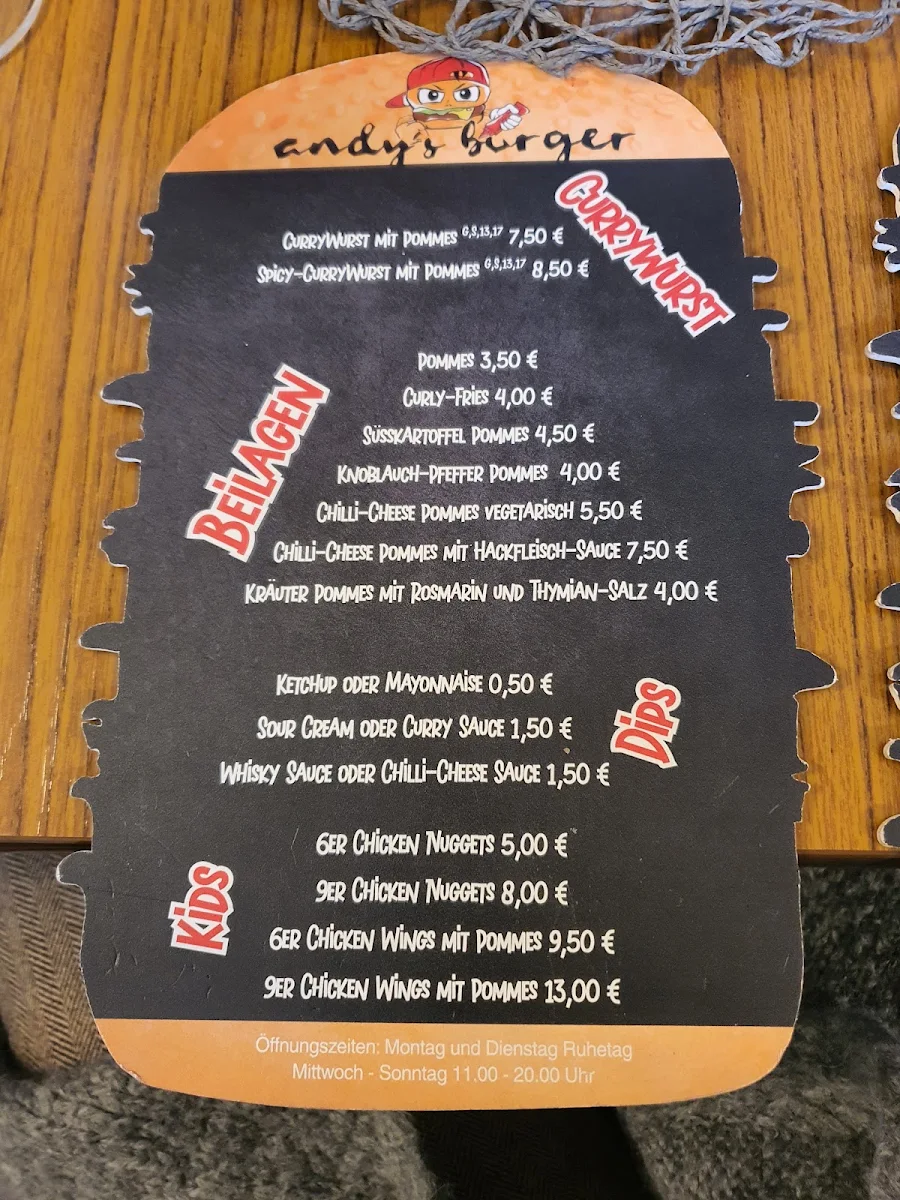 andy's burger
CURRYWURST
CURRYWURST MIT POMMES G,S,13,17 7,50 €
SPICY-CURRYWURST MIT POMMES G,S,13,17 8,50 €
BEILAGEN
POMMES 3,50 €
CURLY-FRIES 4,00 €
SÜSSKARTOFFEL POMMES 4,50 €
KNOBLAUCH-PFEFFER POMMES 4,00 €
CHILLI-CHEESE POMMES VEGETARISCH 5,50 €
CHILLI-CHEESE POMMES MIT HACKFLEISCH-SAUCE 7,50 €
KRÄUTER POMMES MIT ROSMARIN UND THYMIAN-SALZ 4,00 €
DIPS
KETCHUP ODER MAYONNAISE 0,50 €
SOUR CREAM ODER CURRY SAUCE 1,50 €
WHISKY SAUCE ODER CHILLI-CHEESE SAUCE 1,50 €
KIDS
6ER CHICKEN NUGGETS 5,00 €
9ER CHICKEN NUGGETS 8,00 €
6ER CHICKEN WINGS MIT POMMES 9,50 €
9ER CHICKEN WINGS MIT POMMES 13,00 €
Öffnungszeiten: Montag und Dienstag Ruhetag
Mittwoch - Sonntag 11.00 - 20.00 Uhr